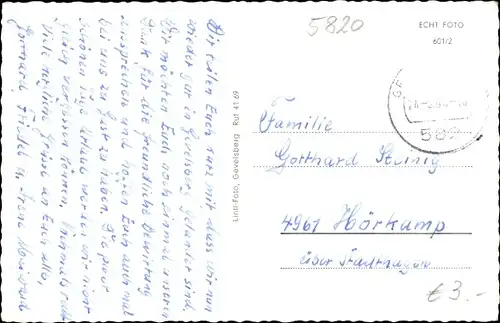 5820
ECHT FOTO
601/2
Wir teilen Euch kurz mit, dass wir nun
wieder gut in Gevelsberg gelandet sind.
Wir möchten Euch noch einmal unseren
Dank für die freundliche Bewirtung
aussprechen und hoffen Euch auch mal
bei uns zu Gast zu haben. Die paar
schönen Tage Urlaub werden wir nicht
gleich vergessen können.
Viele herzliche Grüße an Euch alle,
Lindl-Foto, Gevelsberg Ruf 41 69
582
Familie
Gotthard Steinig
4961 Hörkamp
über Stadthagen
€ 3.-